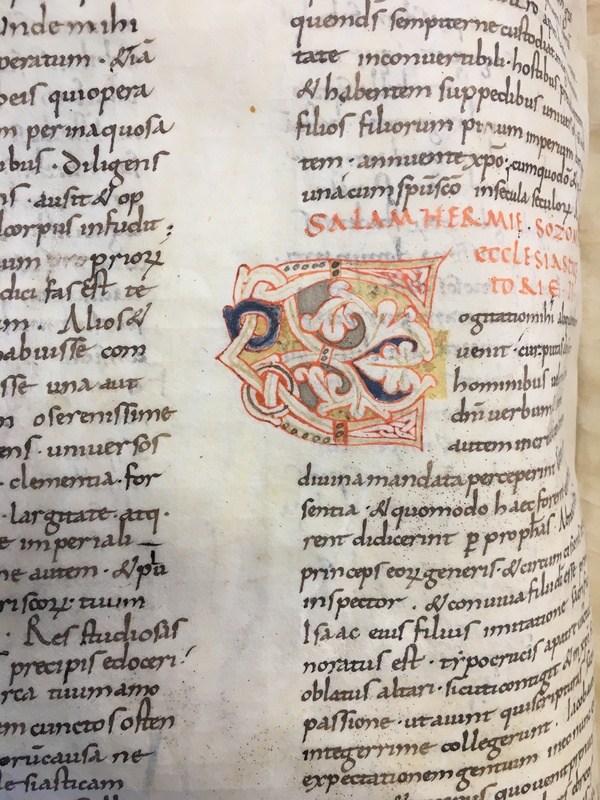 Unde mihi
peratum · &iā
peis quiopera
m per in aquosa
ibus · Diligens
ns · ausit & op
corpus infudit ;
um priorꝝ
dici fas est te
m. Alios &
habuisse com
sse una aut
n o serenissime
ens · universos
clementia · for
largitate · atq ·
e imperiali
ne autem · & pū
riscorꝝ · tuum
· Res studiosis
precipis edoceri ·
rca tuum amo
em cunctos osten
orū causa ne
lesiasticam
quendā sempiterne custodiat
tate inconvertibili · hostibus
& habentem sup pedibus
filios filiorum imperium
tem · annuente xp̄o · cum quo dō
una cum spū scō in secula seculorꝝ
SALAM HERMIE · SOZO
ECCLESIAS
TORIE
C ogitatio mihi
venit · cur
hominibus
dn̄i verbum
autem in
divina mandata perceperint
sentia · & quomodo haec forent
rent didicerint ꝑ proph&as ·
princeps eorꝝ generis · & circum
inspector · & convivia filii dī est
Isaac eius filius imitatione
noratus est · typo crucis
oblatus altari · sicuti contigit
passione · ut aiunt qui scripturas
integerrime collegerunt · Iacob
expectationem gentium
quo venit